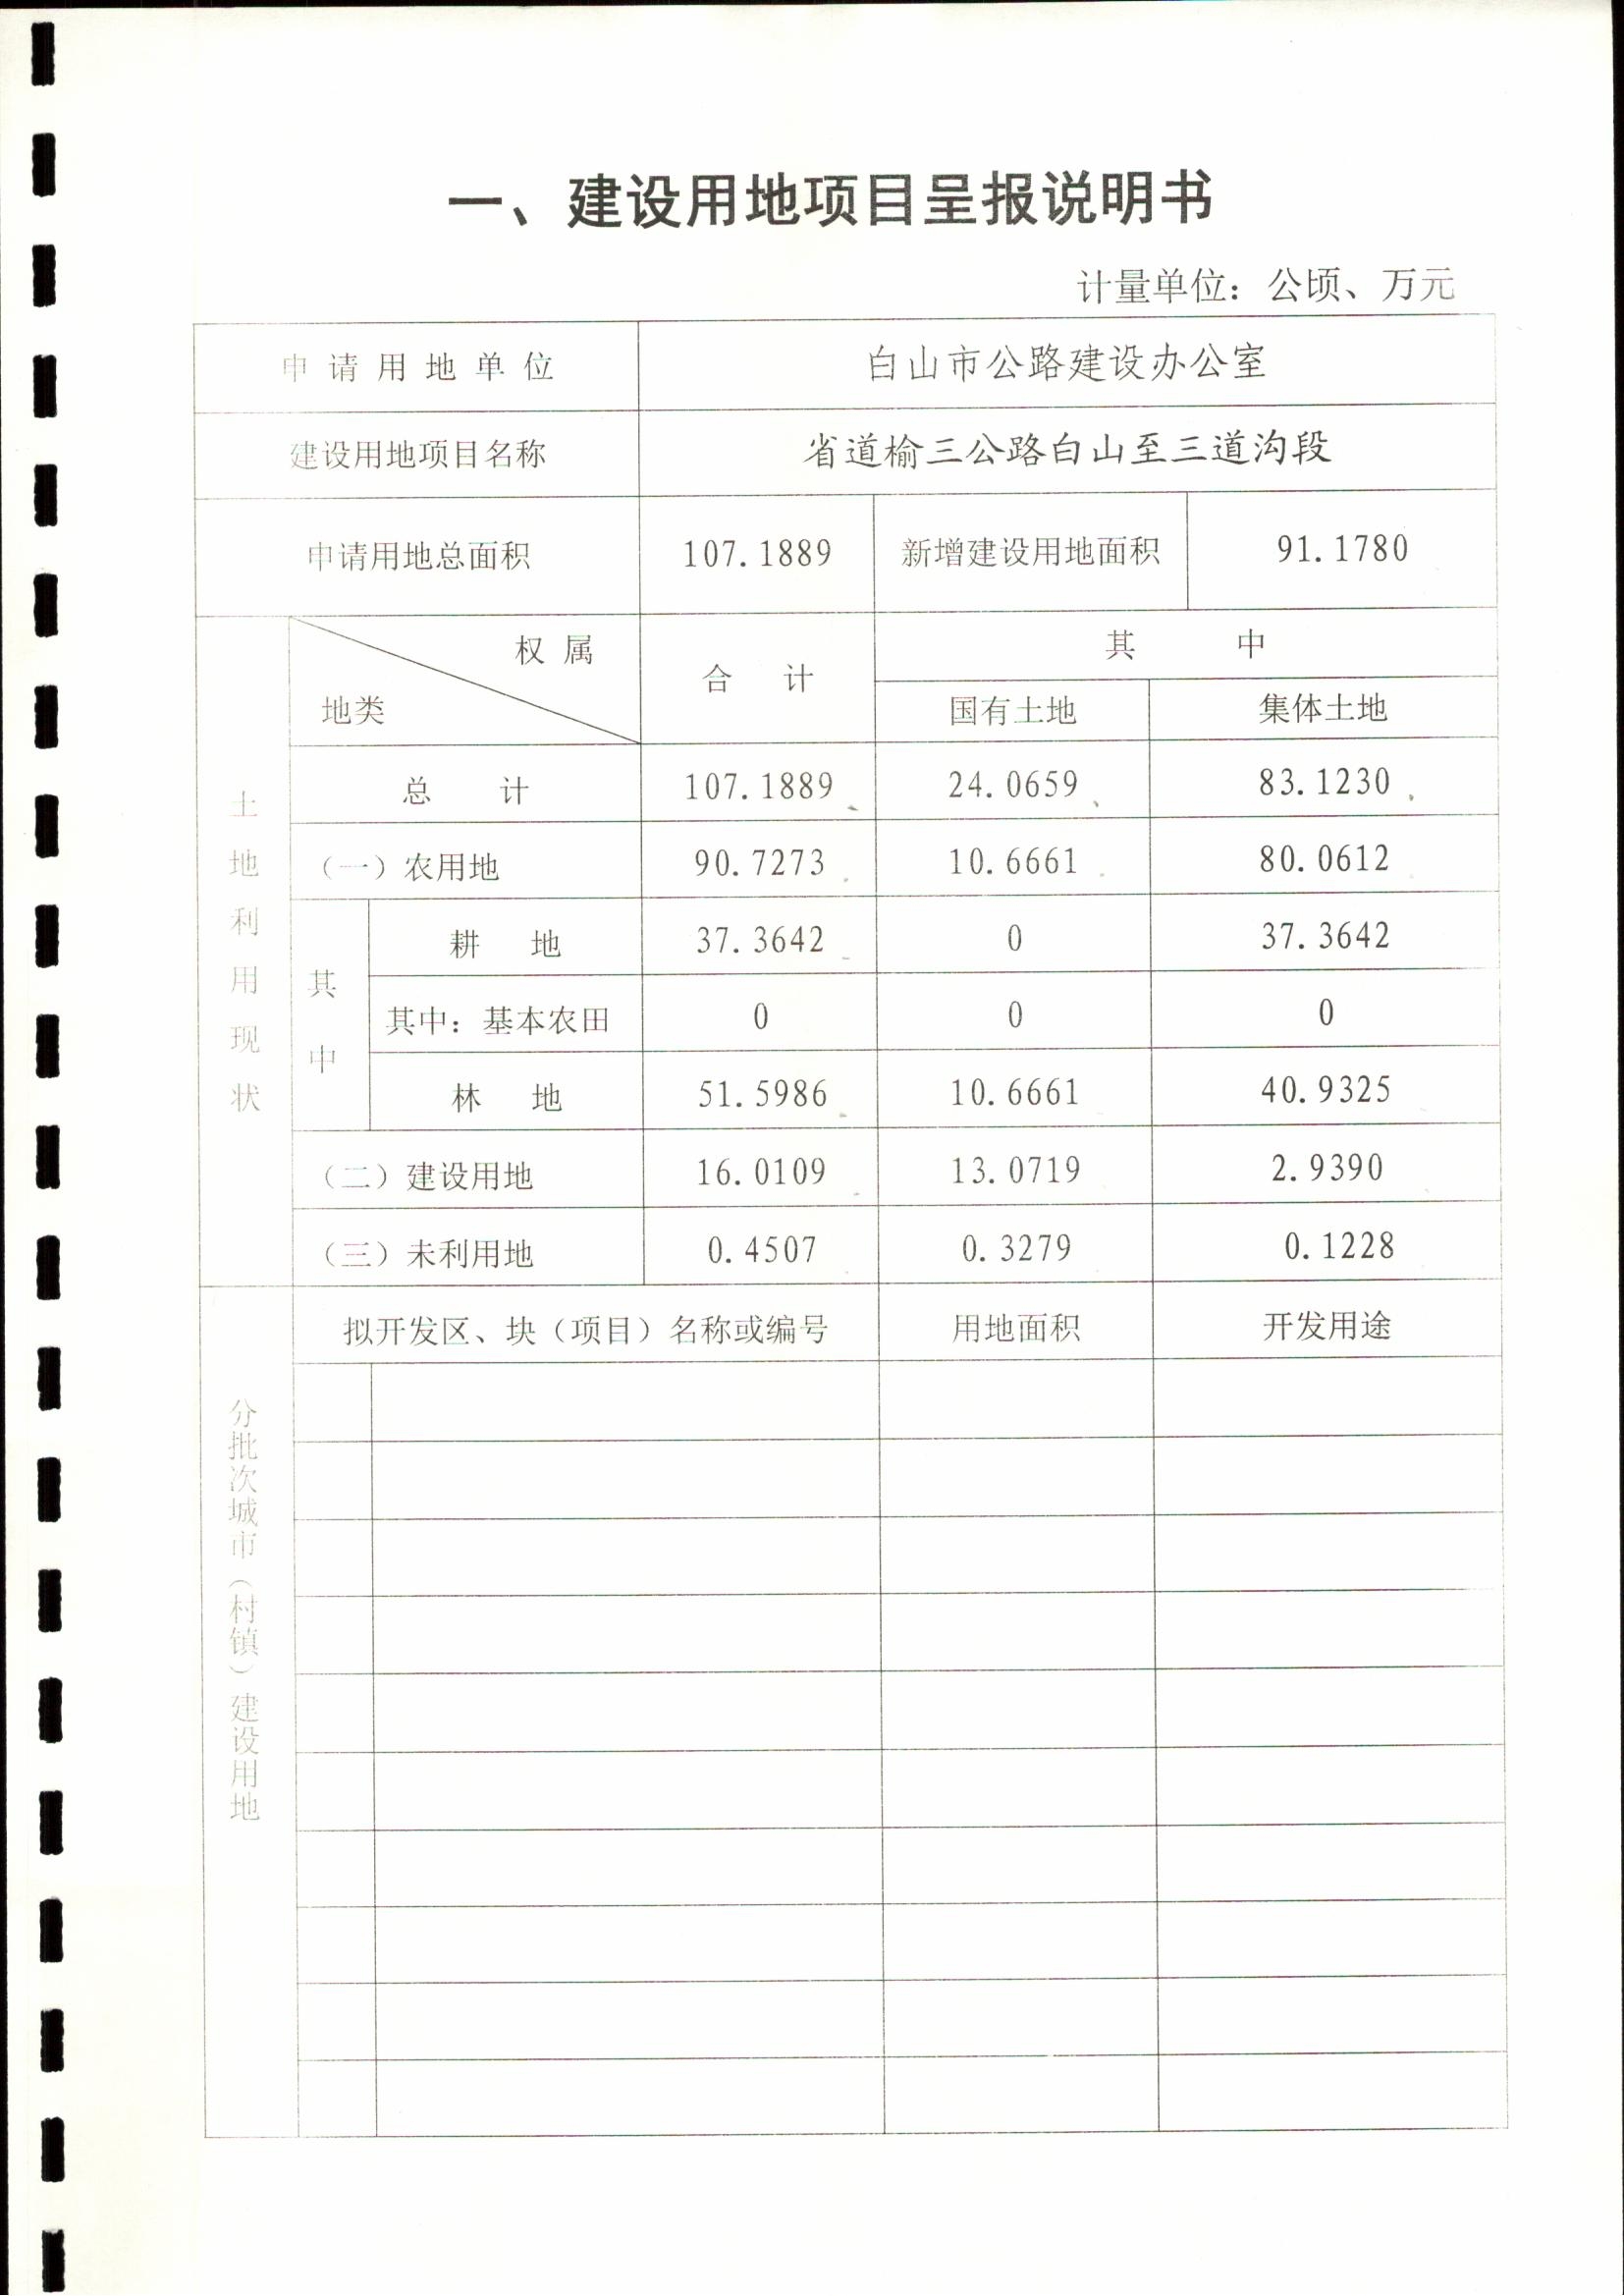 一、建设用地项目呈报说明书
计量单位：公顷、万元
申请用地单位 白山市公路建设办公室
建设用地项目名称 省道榆三公路白山至三道沟段
申请用地总面积 107.1889 新增建设用地面积 91.1780
土地利用现状
权属
地类
合计 其中
国有土地 集体土地
总计 107.1889 24.0659 83.1230
（一）农用地 90.7273 10.6661 80.0612
其中
耕地 37.3642 0 37.3642
其中：基本农田 0 0 0
林地 51.5986 10.6661 40.9325
（二）建设用地 16.0109 13.0719 2.9390
（三）未利用地 0.4507 0.3279 0.1228
分批次城市（村镇）建设用地
拟开发区、块（项目）名称或编号 用地面积 开发用途